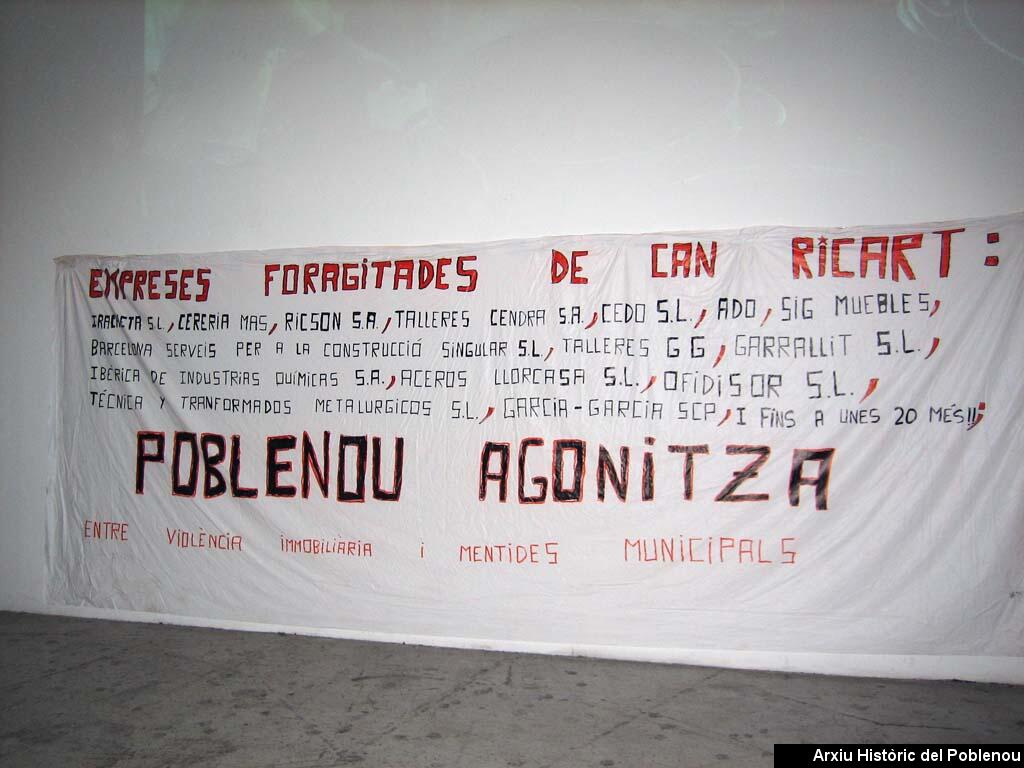 EMPRESES FORAGITADES DE CAN RICART:
IRACHETA S.L, CERERIA MAS, RICSON S.A, TALLERES CENDRA S.A, CEDO S.L., ADO, SIG MUEBLES,
BARCELONA SERVEIS PER A LA CONSTRUCCIÓ SINGULAR S.L, TALLERES G G, GARRALLIT S.L.,
IBÉRICA DE INDUSTRIAS QUÍMICAS S.A., ACEROS LLORCASA S.L., OFIDISOR S.L.,
TÉCNICA Y TRANFORMADOS METALURGICOS S.L., GARCIA-GARCIA SCP, I FINS A UNES 20 MÉS!!;
POBLENOU AGONITZA
ENTRE VIOLÈNCIA IMMOBILIÀRIA I MENTIDES MUNICIPALS
Arxiu Històric del Poblenou